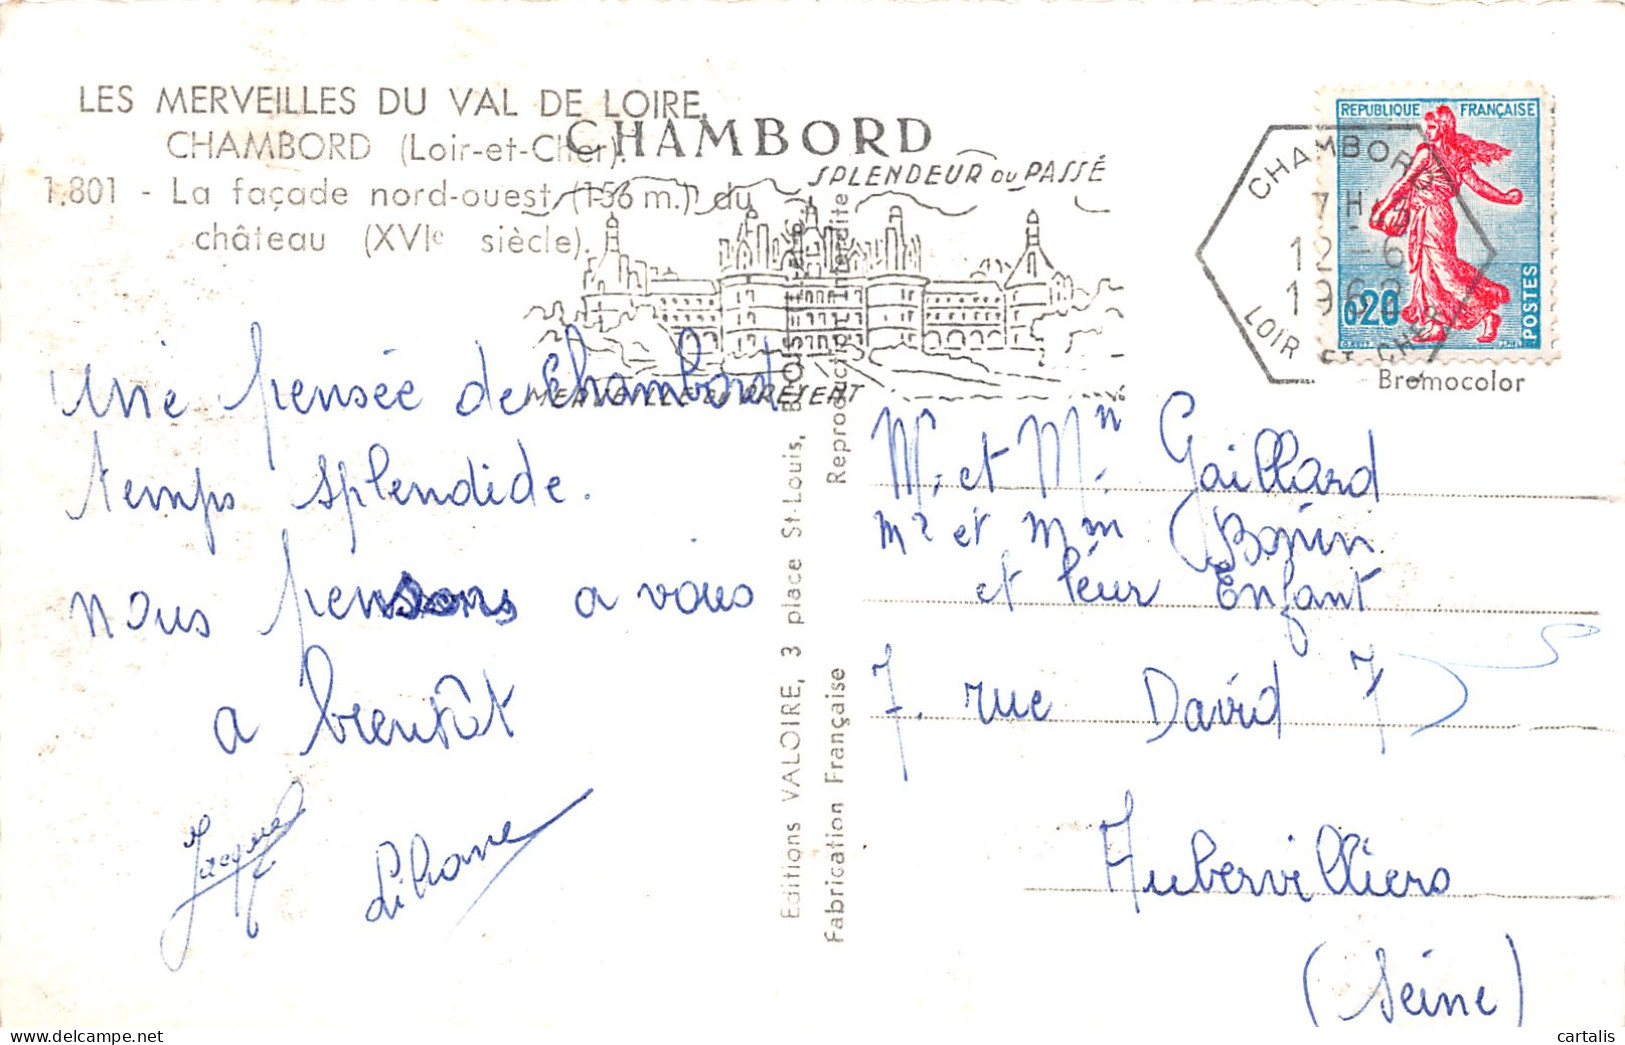 LES MERVEILLES DU VAL DE LOIRE
CHAMBORD (Loir-et-Cher).
1.801 - La façade nord-ouest (156 m.) du
château (XVIe siècle).
CHAMBORD
SPLENDEUR DU PASSÉ
MERVEILLE DU PRÉSENT
CHAMBORD
12-6
LOIR ET CHER
REPUBLIQUE FRANÇAISE
0,20
POSTES
Bremocolor
Une pensée de Chambord
temps splendide.
nous pensons a vous
a bientôt
Jacques
Liliane
Editions VALOIRE, 3 place St-Louis,
Fabrication Française
Reproduction interdite
Mr et Mm Gaillard
Mr et Mm
et leur Enfant
7. rue David 7
Aubervilliers
(Seine)
cartalis